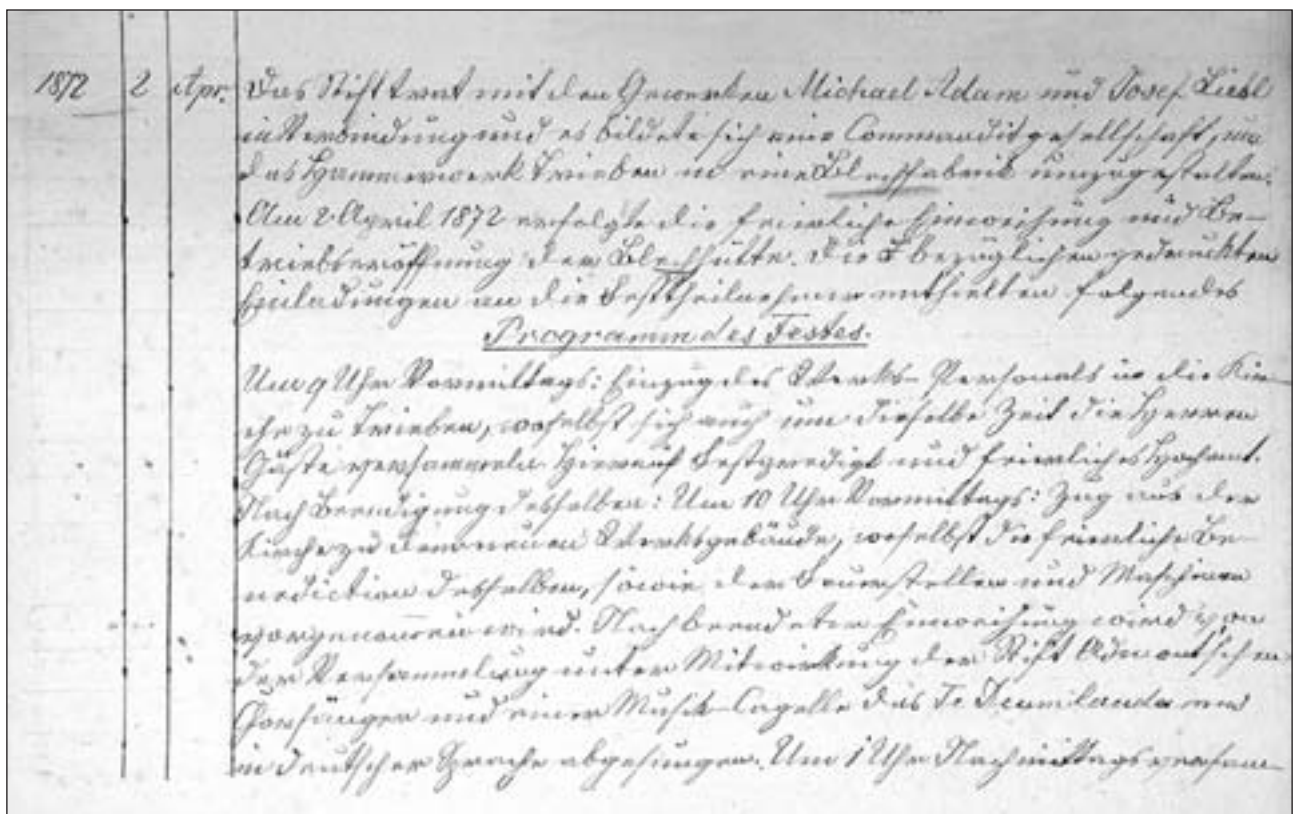 1872 2 Apr. Das Stift trat mit den Gewerken Michael Adam und Josef Liebl
in Verbindung und es bildete sich eine Commanditgesellschaft, um
das Hammerwerk Trieben in eine Blechfabrik umzugestalten.
Am 2. April 1872 erfolgte die feierliche Einweihung und Be-
triebseröffnung der Blechhütte. Die bezüglichen gedruckten
Einladungen an die Festtheilnehmer enthielten folgendes
Programm des Festes.
Um 9 Uhr Vormittags: Einzug des Werks-Personals in die Kir-
che zu Trieben, woselbst sich auch um dieselbe Zeit die Herren
Gäste versammeln. Hierauf Festpredigt und feierliches Hochamt.
Nach Beendigung desselben: Um 10 Uhr Vormittags: Zug aus der
Kirche zu dem neuen Werksgebäude, woselbst die feierliche Be-
nediction desselben, sowie der Feuerstellen und Maschinen
vorgenommen wird. Nach beendeter Einweihung wird von
der Versammlung unter Mitwirkung der Stift Admont'schen
Chorsänger und einer Musik-Capelle das Te Deum laudamus
in deutscher Sprache abgesungen. Um 1 Uhr Nachmittags versam-